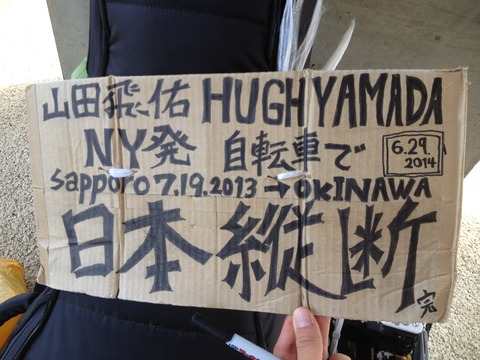 山田飛佑 HUGH YAMADA
NY発 自転車で
6.29.
2014
sapporo 7.19.2013 → OKINAWA
日本縦断
完